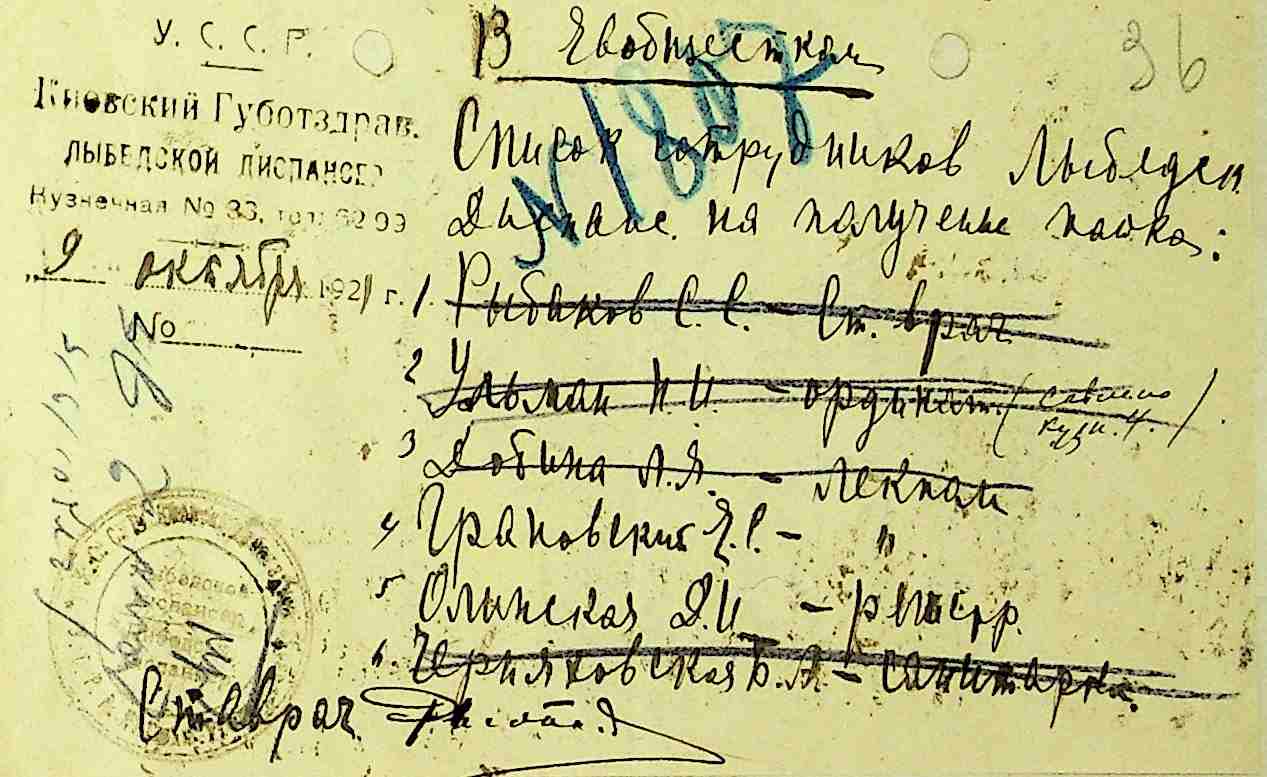 У. С. С. Р.
Киевский Губотздрав.
ЛЫБЕДСКОЙ ДИСПАНСЕР
Кузнечная № 33, тел. 62 99
„9 октября 1921 г.
№
В Евобщестком
36
№ 1807
Список сотрудников Лыбедск.
Диспанс. на получение пайка:
1. Рыбаков С. С. – Ст. врач
2 Ульман Н. И. – ординат. (
3 Добина А. Я. – лекпом
4 Грановский Е. С. – "
5 Олинская Д. И – регистр.
6 Черняховская Б. А. – санитарка.
Ст. врач